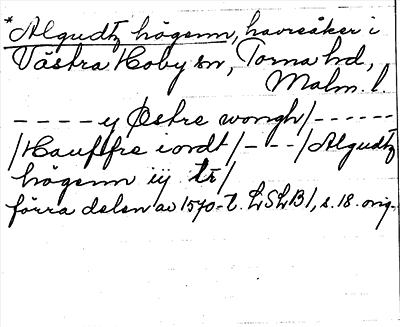 *Algudtz högenn, havresåker i
Västra Hoby sn, Torna hd,
Malm. l.
- - - - y Østre wongh/- - - - - -
/Hauffre iordt/- - -/Algudtz
högenn iij tr/
förra delen av 1570-t. LSLB1, s. 18. orig.